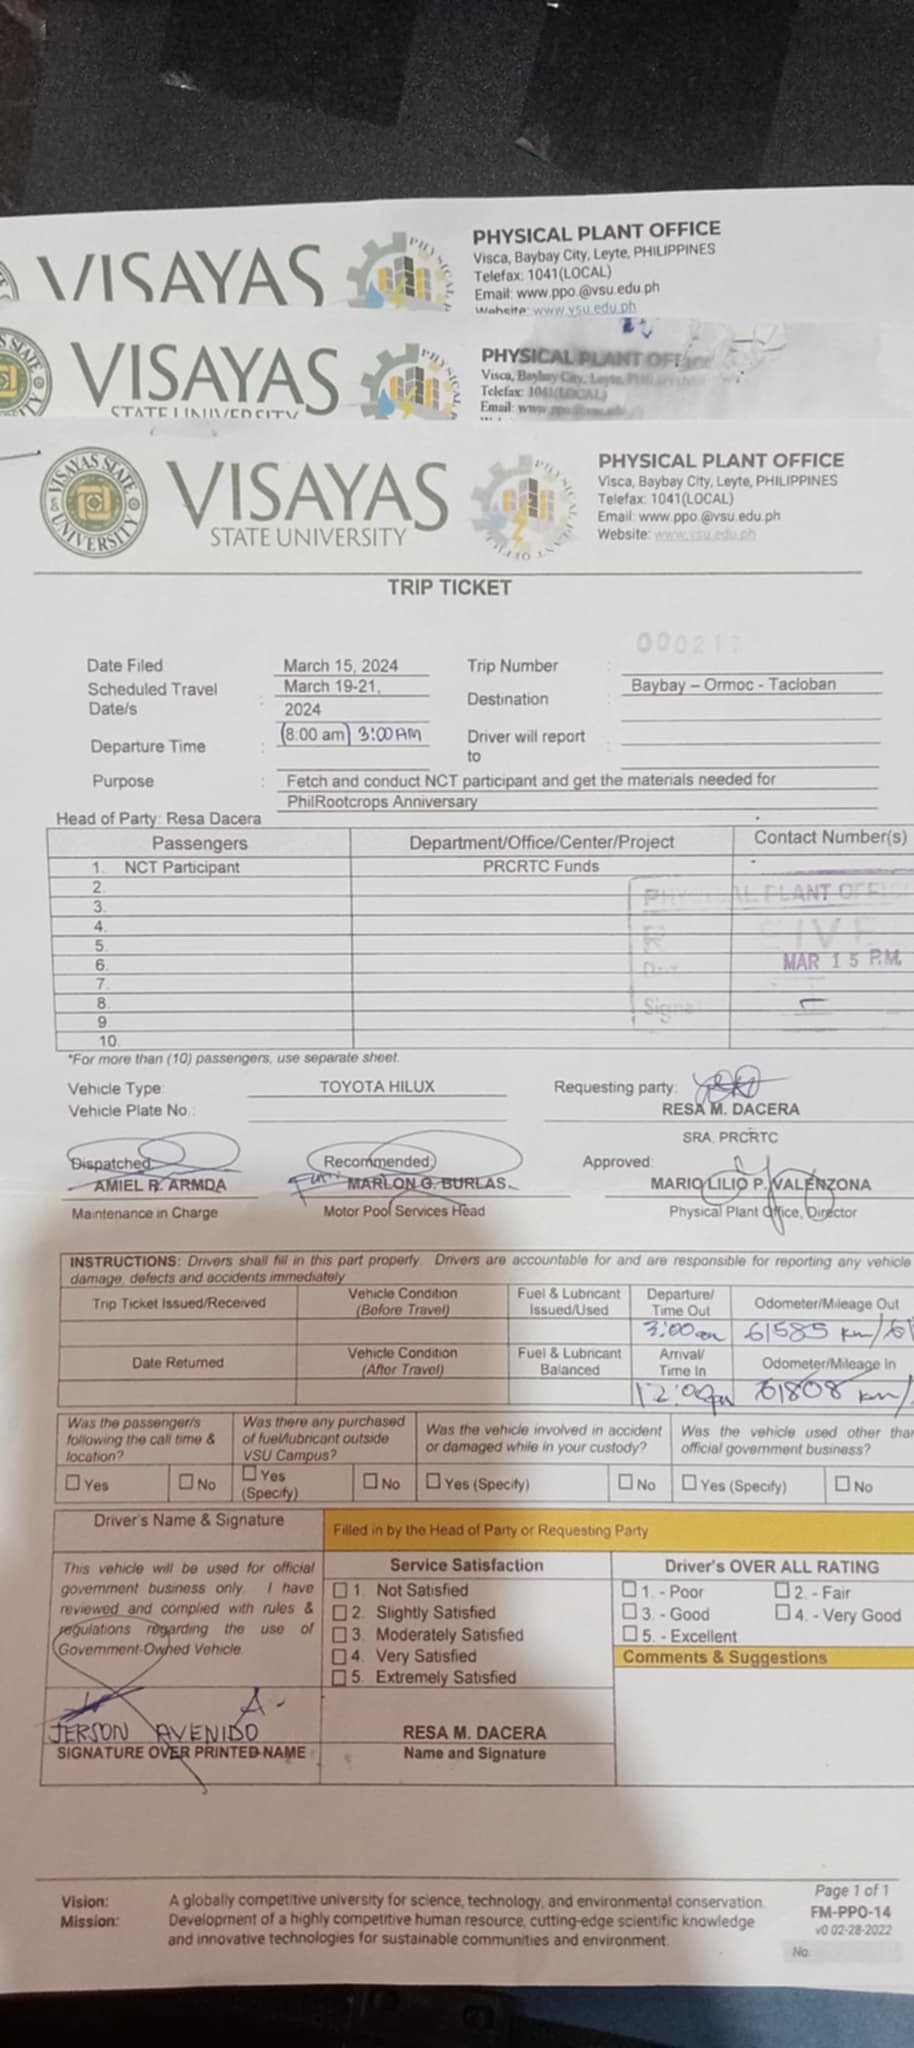 VISAYAS
PHYSICAL PLANT OFFICE
Visca, Baybay City, Leyte, PHILIPPINES
Telefax: 1041(LOCAL)
Email: www.ppo.@vsu.edu.ph
Website: www.vsu.edu.ph
VISAYAS
STATE UNIVERSITY
PHYSICAL PLANT OFFICE
Visca, Baybay City, Leyte, PHILIPPINES
Telefax: 1041(LOCAL)
Email: www.ppo.@vsu.edu.ph
VISAYAS STATE UNIVERSITY
VISAYAS
STATE UNIVERSITY
PHYSICAL PLANT OFFICE
Visca, Baybay City, Leyte, PHILIPPINES
Telefax: 1041(LOCAL)
Email: www.ppo.@vsu.edu.ph
Website: www.vsu.edu.ph
TRIP TICKET
Date Filed March 15, 2024 Trip Number : 000217
Scheduled Travel Date/s : March 19-21, 2024 Destination : Baybay – Ormoc - Tacloban
Departure Time : (8:00 am) 3:00 AM Driver will report to :
Purpose : Fetch and conduct NCT participant and get the materials needed for
PhilRootcrops Anniversary
Head of Party: Resa Dacera
Passengers Department/Office/Center/Project Contact Number(s)
1. NCT Participant PRCRTC Funds -
2.
3.
4.
5.
6.
7.
8.
9.
10.
PHYSICAL PLANT OFFICE
MAR 15 P.M.
*For more than (10) passengers, use separate sheet.
Vehicle Type: TOYOTA HILUX Requesting party:
Vehicle Plate No.: RESA M. DACERA
SRA, PRCRTC
Dispatched: Recommended: Approved:
AMIEL R. ARMDA MARLON G. BURLAS MARIO LILIO P. VALENZONA
Maintenance in Charge Motor Pool Services Head Physical Plant Office, Director
INSTRUCTIONS: Drivers shall fill in this part properly. Drivers are accountable for and are responsible for reporting any vehicle
damage, defects and accidents immediately
Trip Ticket Issued/Received Vehicle Condition (Before Travel) Fuel & Lubricant Issued/Used Departure/ Time Out Odometer/Mileage Out
3:00am 61585 km/
Date Returned Vehicle Condition (After Travel) Fuel & Lubricant Balanced Arrival/ Time In Odometer/Mileage In
12:00pm 61808 km/
Was the passenger/s following the call time & location? Was there any purchased of fuel/lubricant outside VSU Campus? Was the vehicle involved in accident or damaged while in your custody? Was the vehicle used other than official government business?
Yes No Yes (Specify) No Yes (Specify) No Yes (Specify) No
Driver's Name & Signature Filled in by the Head of Party or Requesting Party
This vehicle will be used for official
government business only. I have
reviewed and complied with rules &
regulations regarding the use of
Government-Owned Vehicle.
Service Satisfaction
1. Not Satisfied
2. Slightly Satisfied
3. Moderately Satisfied
4. Very Satisfied
5. Extremely Satisfied
Driver's OVER ALL RATING
1. - Poor 2. - Fair
3. - Good 4. - Very Good
5. - Excellent
Comments & Suggestions
JERSON A. AVENIDO RESA M. DACERA
SIGNATURE OVER PRINTED NAME Name and Signature
Vision: A globally competitive university for science, technology, and environmental conservation.
Mission: Development of a highly competitive human resource, cutting-edge scientific knowledge
and innovative technologies for sustainable communities and environment.
Page 1 of 1
FM-PPO-14
v0 02-28-2022
No.